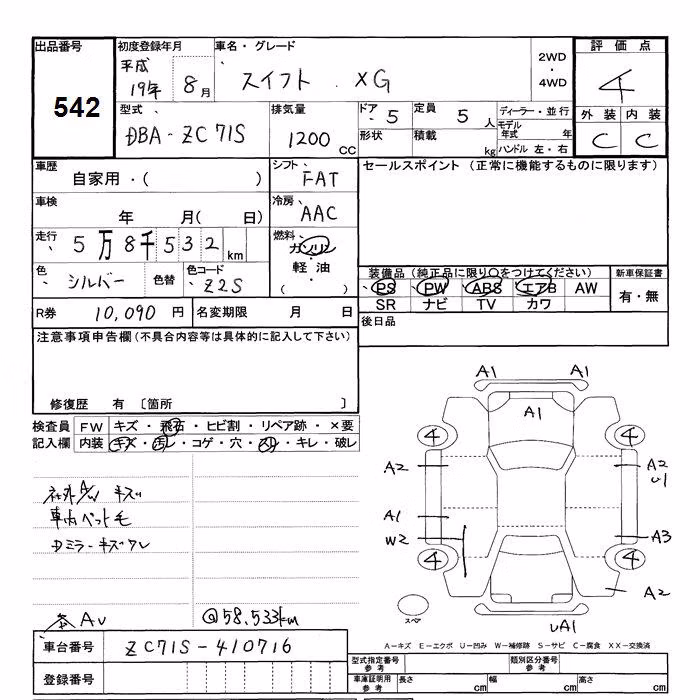 出品番号 初度登録年月 車名・グレード 評価点
542 平成19年 8月 スイフト XG 2WD・4WD 4
型式、 排気量 ドア、5 定員 5人 ディーラー・並行 外装 内装
DBA-ZC71S 1200cc 形状 積載 kg モデル年式 年 ハンドル 左・右 C C
車歴 自家用・( ) シフト、FAT セールスポイント (正常に機能するものに限ります)
車検 年 月( 日) 冷房、AAC
走行、5万8千532km 燃料、ガソリン・軽油・( )
色、シルバー 色替 色コード、Z2S 装備品(純正品に限り○をつけてください) 新車保証書
PS PW ABS エアB AW 有・無
SR ナビ TV カワ
R券 10,090円 名変期限 月 日 後日品
注意事項申告欄(不具合内容等は具体的に記入して下さい)
修復歴 有〔箇所 〕
検査員記入欄 FW キズ・飛石・ヒビ割・リペア跡・×要
内装 キズ・汚レ・コゲ・穴・スレ・キレ・破レ
社外A/V キズ
車内ペット毛
Dミラーキズワレ
AV @58,533km
A1 A1
A1
4 4
A2 A2
U1
A1
W2 A3
4 4
A2
スペア UA1
A－キズ E－エクボ U－凹み W－補修跡 S－サビ C－腐食 XX－交換済
車台番号 ZC71S-410716
型式指定番号 参考 類別区分番号 参考
登録番号 車庫証明用 参考 長さ cm 幅 cm 高さ cm